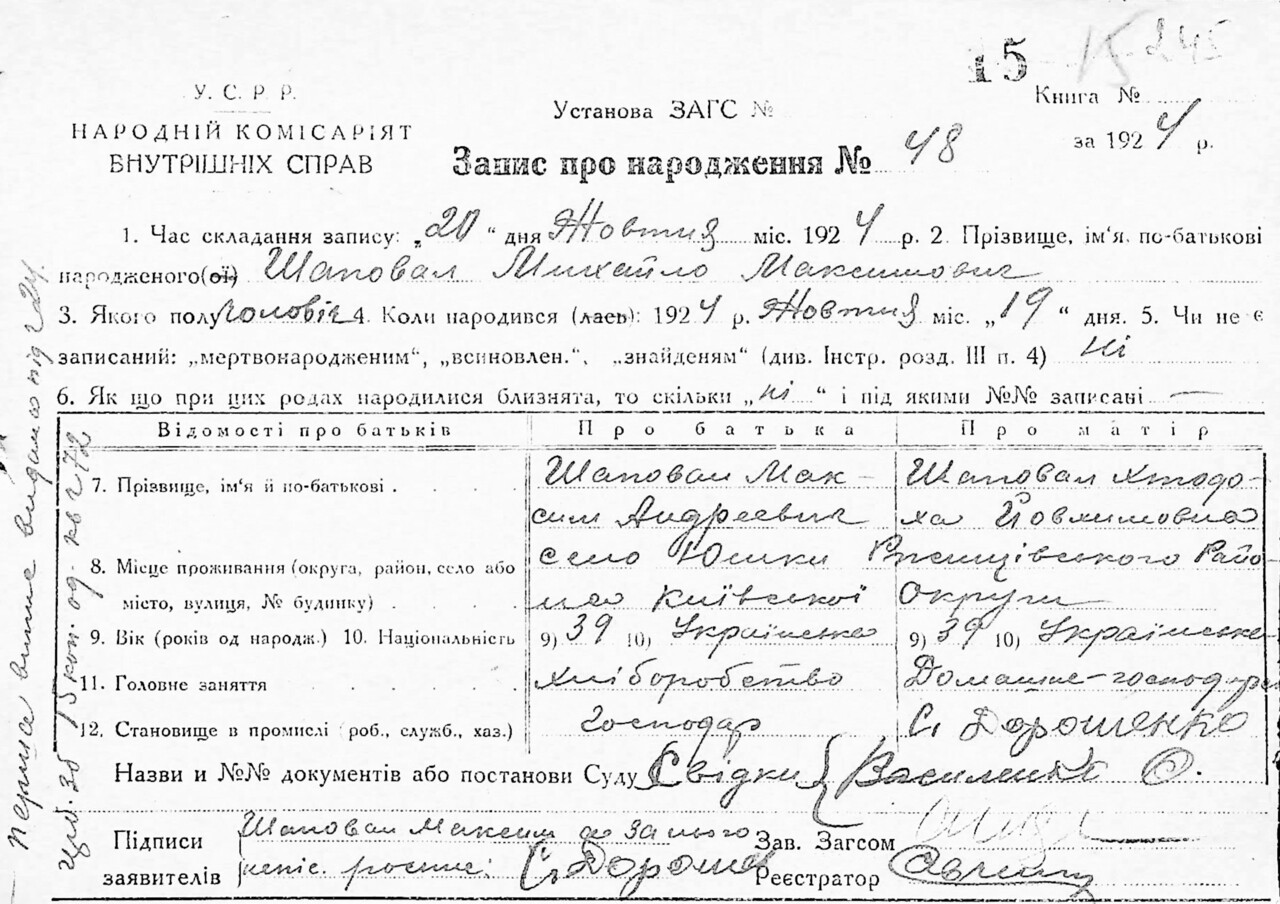 15 15 245
У. С. Р. Р.
НАРОДНІЙ КОМІСАРІЯТ
ВНУТРІШНІХ СПРАВ
Установа ЗАГС №
Книга №
за 1924 р.
Запис про народження № 48
1. Час складання запису: „20“ дня Жовтня міс. 1924 р. 2. Прізвище, ім'я, по-батькові
народженого(ої) Шаповал Михайло Максимович
3. Якого полу чоловіч 4. Коли народився (лась): 1924 р. Жовтня міс. „19“ дня. 5. Чи не є
записаний: „мертвонародженим“, „всиновлен.“, „знайденям“ (див. Інстр. розд. III п. 4) ні
6. Як що при цих родах народилися близнята, то скільки „ні“ і під якими №№ записані —
Відомості про батьків Про батька Про матір
7. Прізвище, ім'я й по-батькові . . . . Шаповал Мак- Шаповал Хтодо-
сим Андреевич ха Йовхимовна
8. Місце проживання (округа, район, село або село Юшки Ржищівського Райо-
місто, вулиця, № будинку) . . . . на Київської Округи
9. Вік (років од народж.) 10. Національність 9) 39 10) Українська 9) 39 10) Українська
11. Головне заняття . . . . Хліборобство Домашнє-господарст
12. Становище в промислі (роб., служб., хаз.) Господар С. Дорошенко
Назви и №№ документів або постанови Суду Свідки { Василенко О.
Підписи Шаповал Максим а за нього Зав. Загсом
заявителів непіс. роспис: С. Дороше Реєстратор
Перша випис видана під 24
15 коп. од. кв. 272